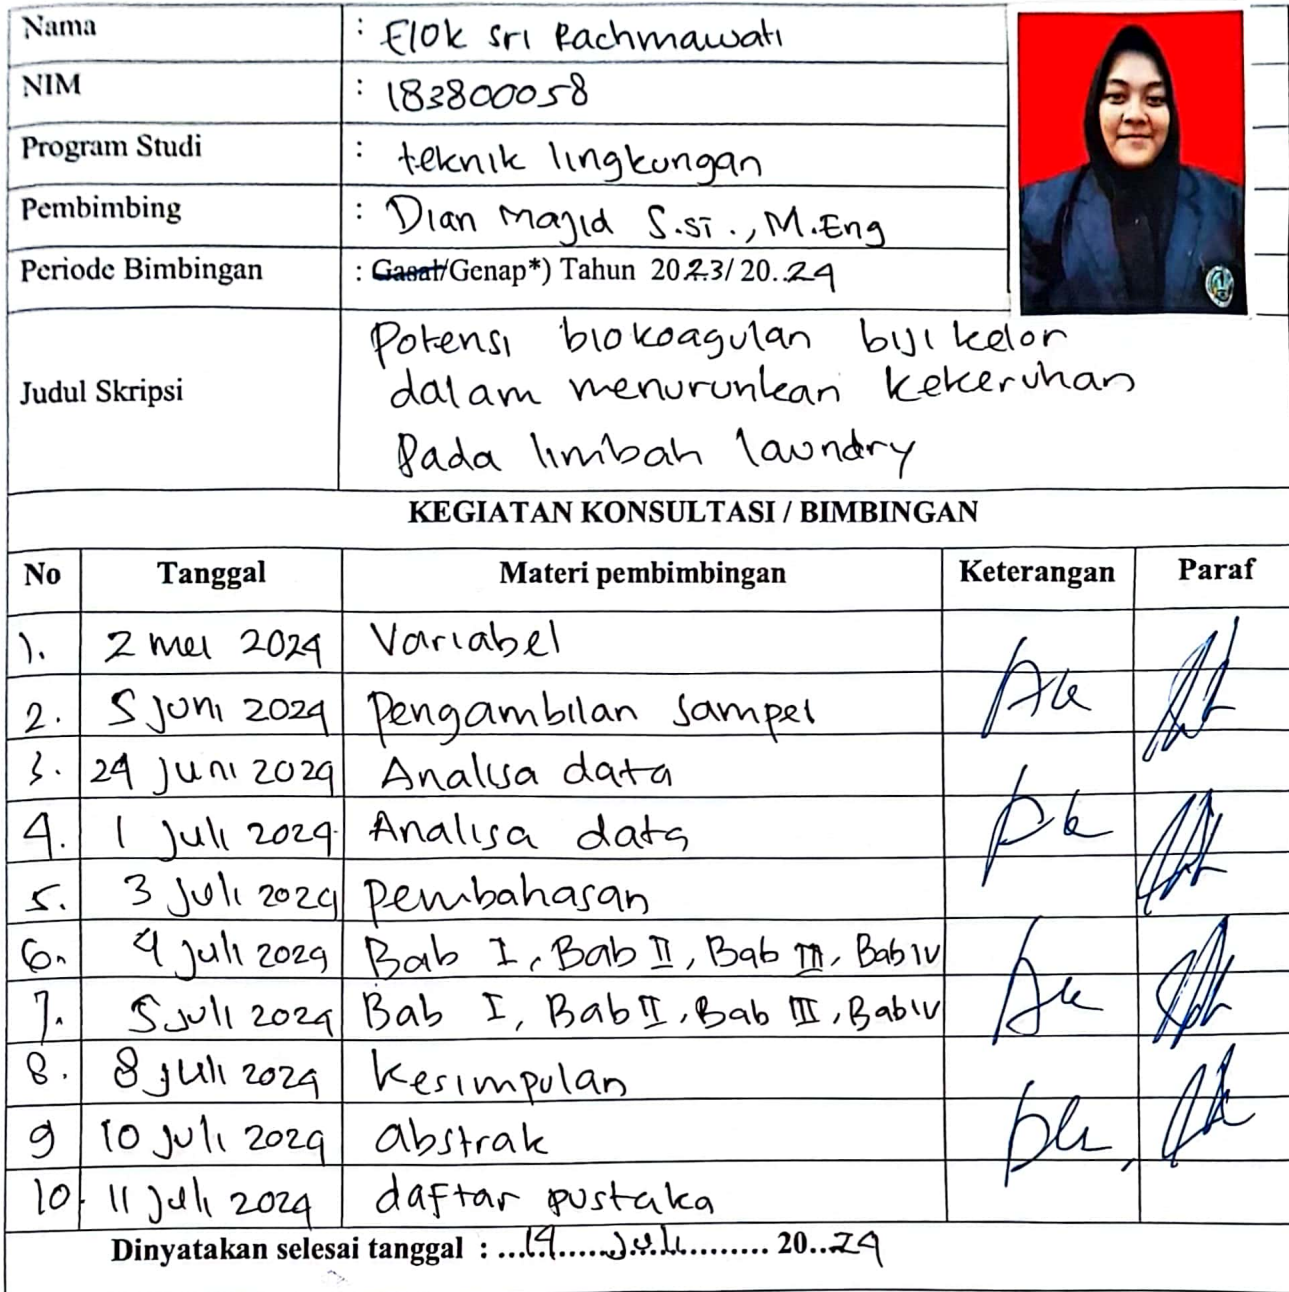 Nama : Elok Sri Rachmawati
NIM : 183800058
Program Studi : teknik lingkungan
Pembimbing : Dian Majid S.Si., M.Eng
Periode Bimbingan : Gasal/Genap*) Tahun 2023/ 20..24
Judul Skripsi
Potensi biokoagulan biji kelor
dalam menurunkan kekeruhan
Pada limbah laundry
KEGIATAN KONSULTASI / BIMBINGAN
No Tanggal Materi pembimbingan Keterangan Paraf
1. 2 mei 2024 Variabel
2. 5 juni 2024 Pengambilan sampel
3. 24 juni 2024 Analisa data
4. 1 juli 2024 Analisa data
5. 3 juli 2024 pembahasan
6. 4 juli 2024 Bab I, Bab II, Bab III, Bab IV
7. 5 juli 2024 Bab I, Bab II, Bab III, Bab IV
8. 8 juli 2024 kesimpulan
9 10 juli 2024 abstrak
10. 11 juli 2024 daftar pustaka
Dinyatakan selesai tanggal : ...14......Juli......... 20..24